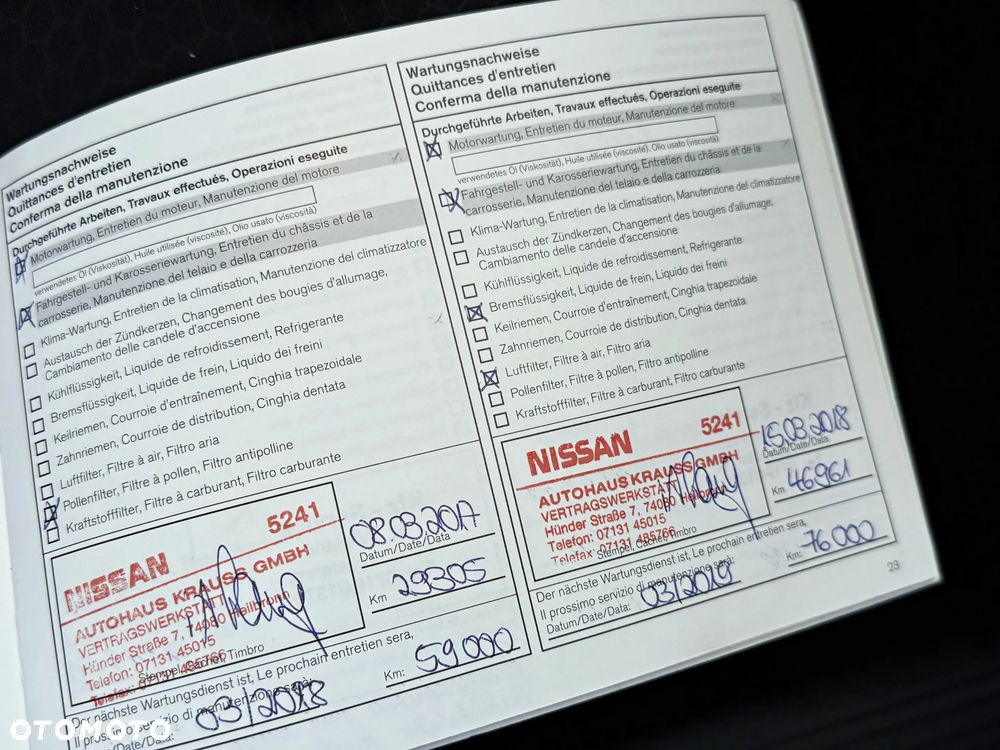 Wartungsnachweise
Quittances d'entretien
Conferma della manutenzione
Durchgeführte Arbeiten, Travaux effectués, Operazioni eseguite
Motorwartung, Entretien du moteur, Manutenzione del motore
verwendetes Öl (Viskosität), Huile utilisée (viscosité), Olio usato (viscosità)
Fahrgestell- und Karosseriewartung, Entretien du châssis et de la
carrosserie, Manutenzione del telaio e della carrozzeria
Klima-Wartung, Entretien de la climatisation, Manutenzione del climatizzatore
Austausch der Zündkerzen, Changement des bougies d'allumage,
Cambiamento delle candele d'accensione
Kühlflüssigkeit, Liquide de refroidissement, Refrigerante
Bremsflüssigkeit, Liquide de frein, Liquido dei freini
Keilriemen, Courroie d'entraînement, Cinghia trapezoidale
Zahnriemen, Courroie de distribution, Cinghia dentata
Luftfilter, Filtre à air, Filtro aria
Pollenfilter, Filtre à pollen, Filtro antipolline
Kraftstofffilter, Filtre à carburant, Filtro carburante
NISSAN 5241
AUTOHAUS KRAUSS GMBH
VERTRAGSWERKSTATT
Hünder Straße 7, 74080 Heilbronn
Telefon: 07131 45015
Telefax: 07131 485766
Stempel, Cachet, Timbro
08.03.2017
Datum/Date/Data
Km 29305
Der nächste Wartungsdienst ist, Le prochain entretien sera,
Il prossimo servizio di manutenzione sarà:
Datum/Date/Data: 03/2018
Km: 59000
Wartungsnachweise
Quittances d'entretien
Conferma della manutenzione
Durchgeführte Arbeiten, Travaux effectués, Operazioni eseguite
Motorwartung, Entretien du moteur, Manutenzione del motore
verwendetes Öl (Viskosität), Huile utilisée (viscosité), Olio usato (viscosità)
Fahrgestell- und Karosseriewartung, Entretien du châssis et de la
carrosserie, Manutenzione del telaio e della carrozzeria
Klima-Wartung, Entretien de la climatisation, Manutenzione del climatizzatore
Austausch der Zündkerzen, Changement des bougies d'allumage,
Cambiamento delle candele d'accensione
Kühlflüssigkeit, Liquide de refroidissement, Refrigerante
Bremsflüssigkeit, Liquide de frein, Liquido dei freini
Keilriemen, Courroie d'entraînement, Cinghia trapezoidale
Zahnriemen, Courroie de distribution, Cinghia dentata
Luftfilter, Filtre à air, Filtro aria
Pollenfilter, Filtre à pollen, Filtro antipolline
Kraftstofffilter, Filtre à carburant, Filtro carburante
NISSAN 5241
AUTOHAUS KRAUSS GMBH
VERTRAGSWERKSTATT
Hünder Straße 7, 74080 Heilbronn
Telefon: 07131 45015
Telefax: 07131 485766
Stempel, Cachet, Timbro
15.03.2018
Datum/Date/Data
Km 46961
Der nächste Wartungsdienst ist, Le prochain entretien sera,
Il prossimo servizio di manutenzione sarà:
Datum/Date/Data: 03/2019
Km: 76000
23
OTOMOTO